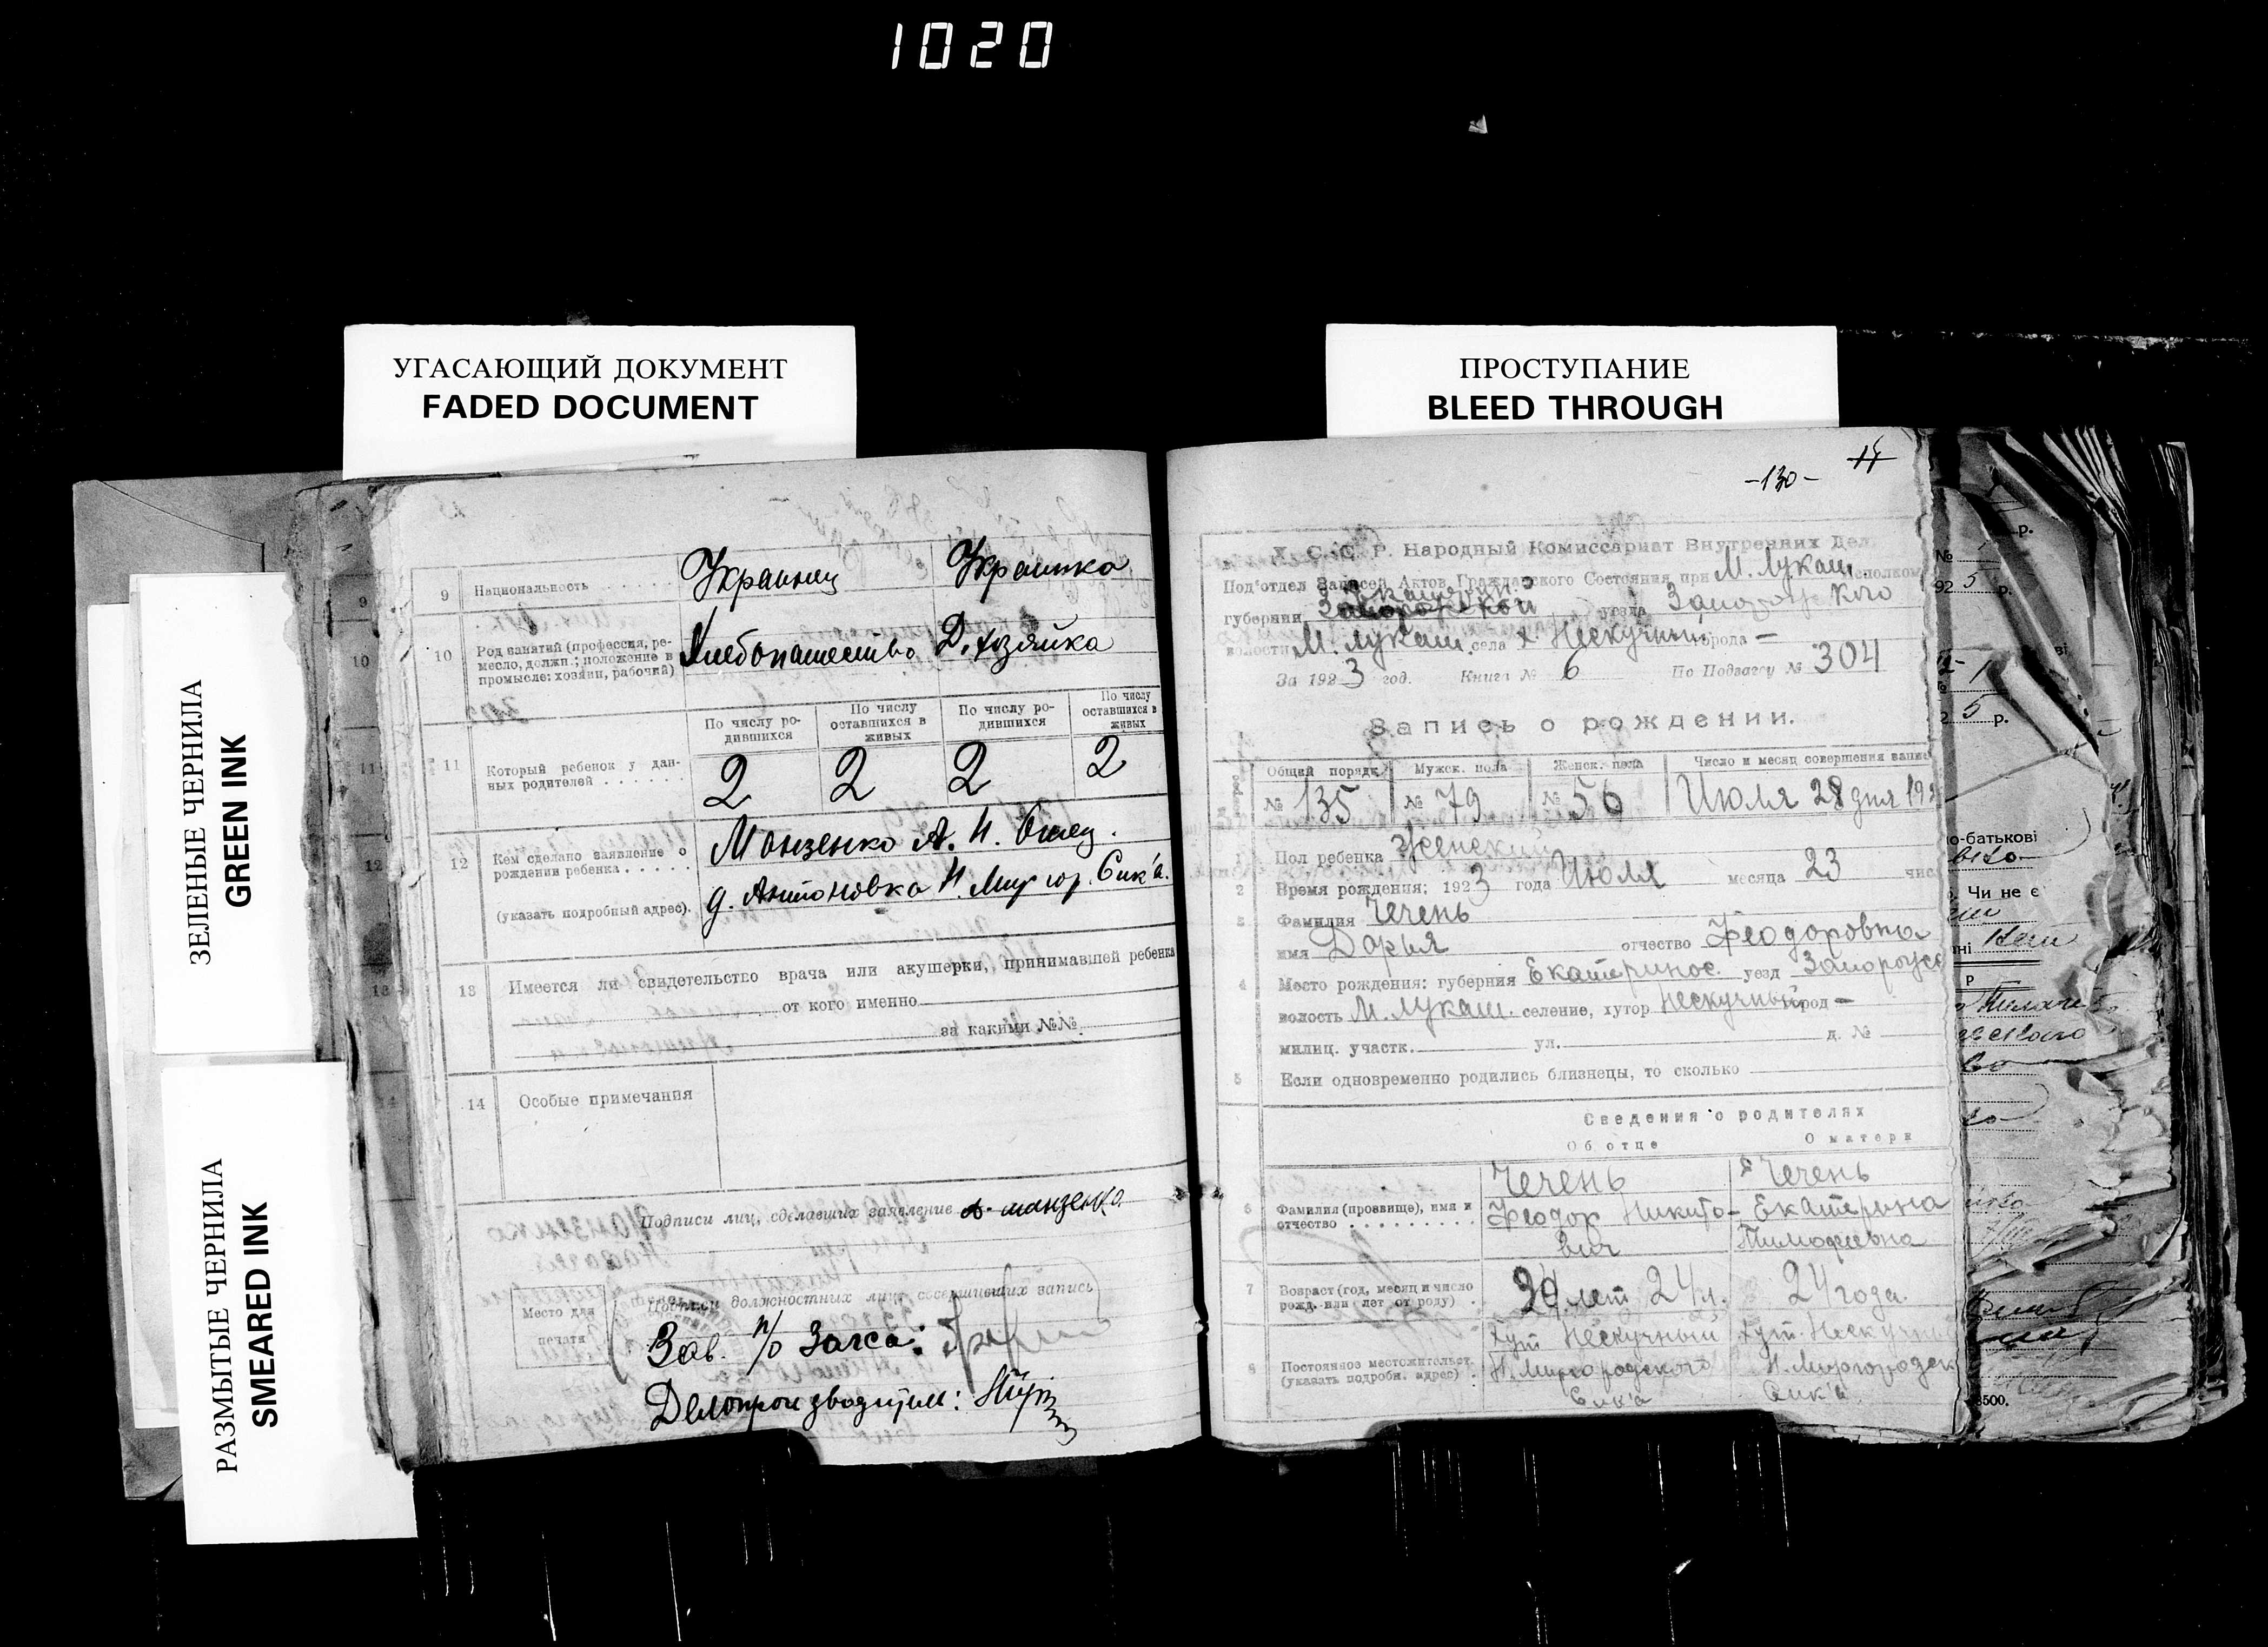 1020
УГАСАЮЩИЙ ДОКУМЕНТ
FADED DOCUMENT
ПРОСТУПАНИЕ
BLEED THROUGH
ЗЕЛЕНЫЕ ЧЕРНИЛА
GREEN INK
РАЗМЫТЫЕ ЧЕРНИЛА
SMEARED INK
9 Национальность Украинец Украинка
10 Род занятий (профессия, ре-
месло, должн.; положение в
промысле: хозяин, рабочий)
Хлебопашество Д. хозяйка
По числу ро-
дившихся
По числу
оставшихся в
живых
По числу ро-
дившихся
По числу
оставшихся в
живых
11 Который ребенок у дан-
ных родителей
2 2 2 2
12 Кем сделано заявление о
рождении ребенка
Манзенко А. И. Отец.
(указать подробный адрес). д. Антоновка Н. Миргор. Сик'а.
13 Имеется ли свидетельство врача или акушерки, принимавшей ребенка
от кого именно
за какими №№
14 Особые примечания
Подписи лиц, сделавших заявление А. Манзенко
Место для
печати
Подписи должностных лиц, совершивших запись
Зав. п/о Загса:
Делопроизводитель:
-130- 14
Х. С. С. Р. Народный Комиссариат Внутренних Дел.
Под'отдел Записей Актов Гражданского Состояния при М. Лукаш. исполком
губернии уезда
волости М. Лукаш. села х. Нескучный города —
За 1923 год. Книга № 6 По Подзагсу № 304
Запись о рождении.
Общий порядк. Мужск. пола Женск. пола Число и месяц совершения запис
№ 135 № 79 № 56 Июля 28 дня 192
1 Пол ребенка Женский
2 Время рождения: 1923 года Июля месяца 23 чис
3 Фамилия Чечень
имя Дарья отчество Феодоровна
4 Место рождения: губерния Екатеринос. уезд
волость М. Лукаш. селение, хутор Нескучный город —
милиц. участк. ул. д. №
5 Если одновременно родились близнецы, то сколько
Сведения о родителях
Об отце О матери
6 Фамилия (прозвище), имя и
отчество
Чечень
Феодор Никито-
вич
Чечень
Екатерина
Тимофеевна
7 Возраст (год, месяц и число
рожд. или лет от роду)
лет 24 л. 24 года.
8 Постоянное местожительст.
(указать подробн. адрес)
хут Нескучный
Н. Миргородского
Сик'а
хут. Нескучный
Н. Миргородск
Сик'а.
р.
№
92 5 р.
2 5 р.
по-батькові
Чи не є
Р
3500.